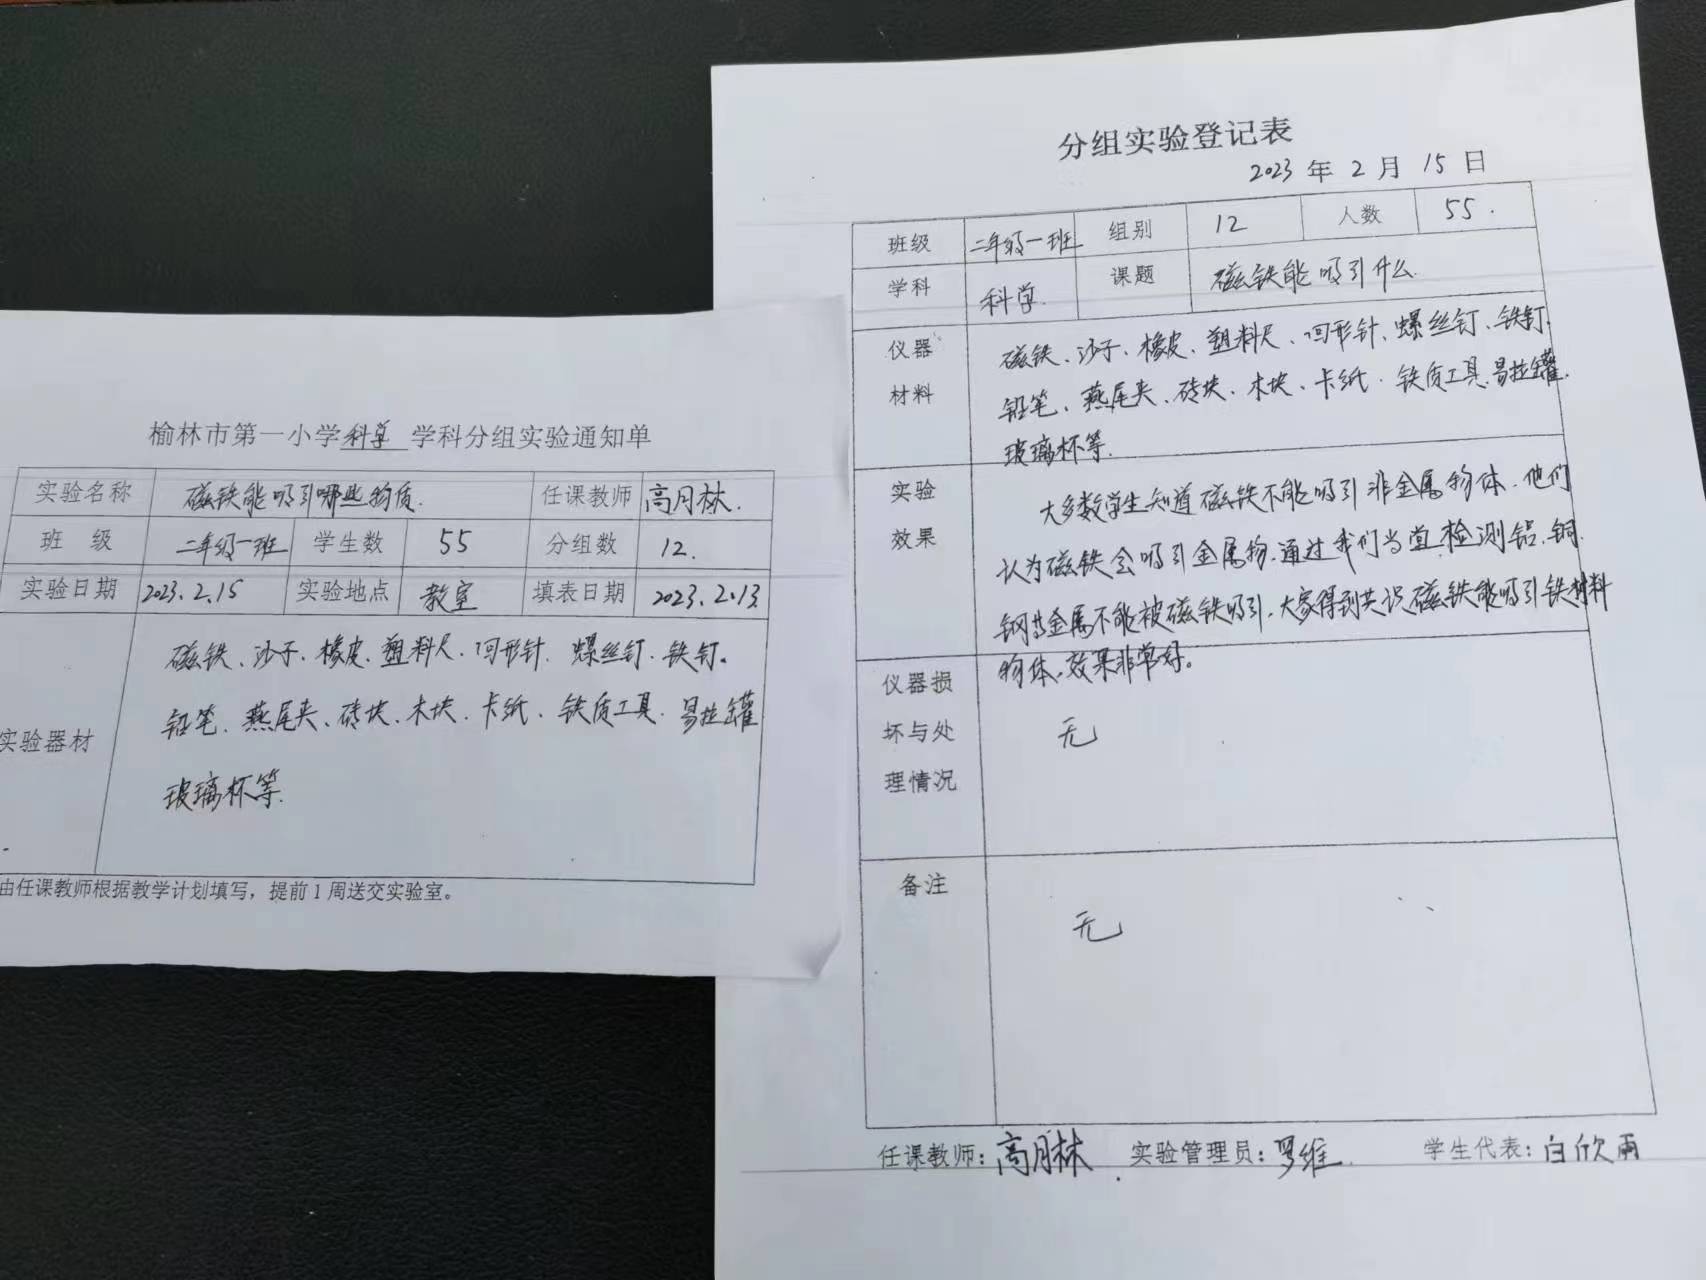 榆林市第一小学科学 学科分组实验通知单
实验名称 磁铁能吸引哪些物质. 任课教师 高月林.
班 级 二年级一班 学生数 55 分组数 12.
实验日期 2023.2.15 实验地点 教室 填表日期 2023.2.13
磁铁、沙子、橡皮、塑料尺、回形针、螺丝钉、铁钉。
铅笔、燕尾夹、砖块、木块、卡纸、铁质工具、易拉罐
实验器材
玻璃杯等.
由任课教师根据教学计划填写，提前1周送交实验室。
分组实验登记表
2023 年 2 月 15 日
班级 二年级一班 组别 12 人数 55.
学科 科学. 课题 磁铁能吸引什么.
仪器 磁铁、沙子、橡皮、塑料尺、回形针、螺丝钉、铁钉.
材料 铅笔、燕尾夹、砖块、木块、卡纸. 铁质工具.易拉罐.
玻璃杯等.
实验 大多数学生知道磁铁不能吸引非金属物体.他们
效果 认为磁铁会吸引金属物.通过我们当堂检测铝、铜.
钢等金属不能被磁铁吸引.大家得到共识磁铁能吸引铁材料
物体、效果非常好。
仪器损
坏与处 无
理情况
备注
无
任课教师：高月林 实验管理员：罗维. 学生代表：白欣雨